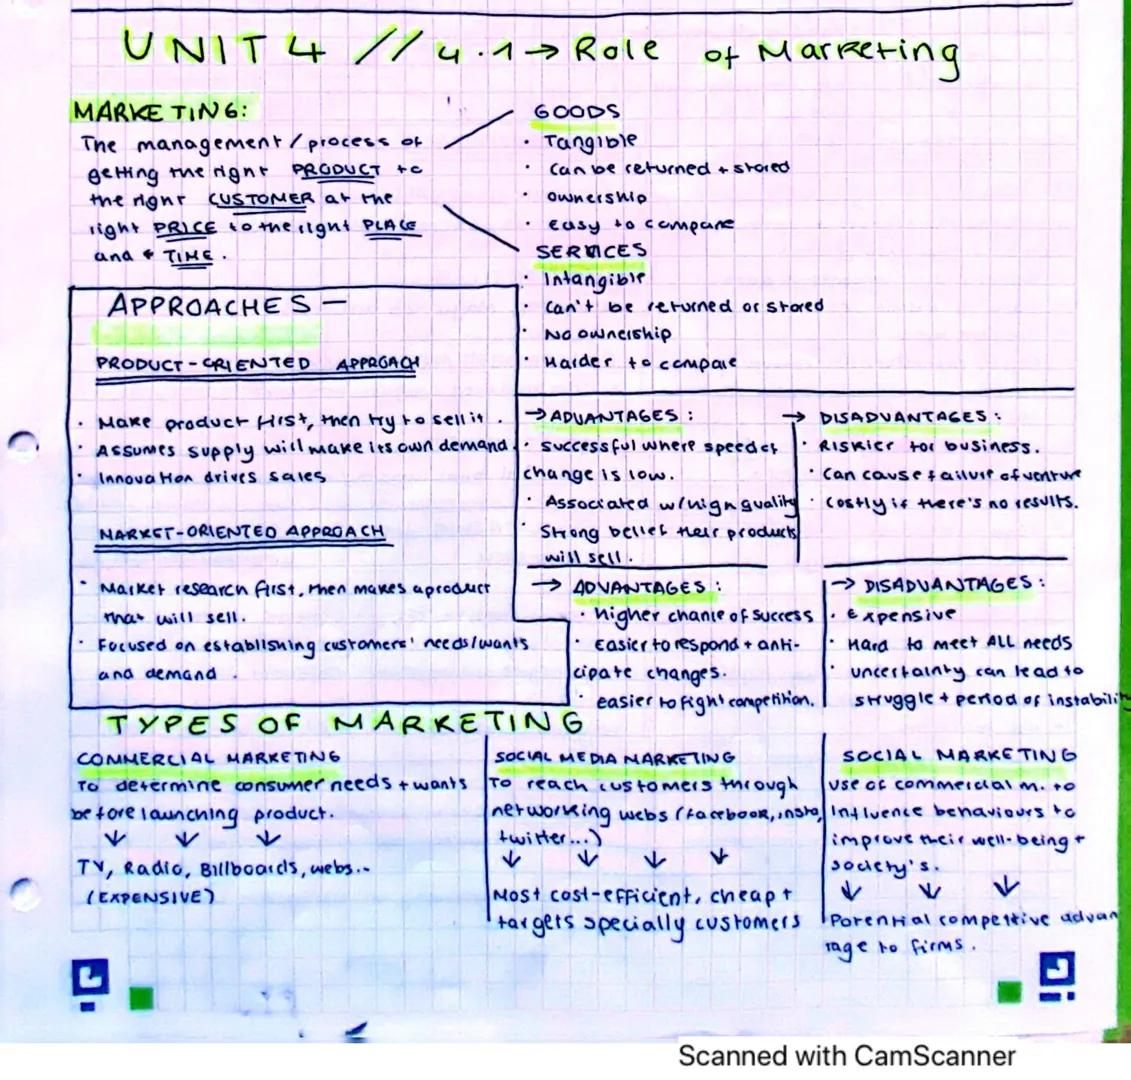 UNIT 4 // 4.1 → Role of Marketing
MARKETING:
The management/process of
getting the right PRODUCT to
the right CUSTOMER at the
right PRICE to the right PLACE
and TIME.
GOODS
· Tangible
· Can be returned + stored
· ownership
· Easy to compare
SERVICES
· Intangible
· Can't be returned or stored
· No ownership
· Harder to compare
APPROACHES —
PRODUCT-ORIENTED APPROACH
· Make product first, then try to sell it.
· Assumes supply will make its own demand.
· Innovation drives sales
→ ADVANTAGES:
· successful where speed of
change is low.
· Associated w/ high quality
· Strong belief their products
will sell.
→ DISADVANTAGES:
· Riskier for business.
· Can cause failure of venture
· Costly if there's no results.
MARKET-ORIENTED APPROACH
· Market research first, then makes a product
that will sell.
· Focused on establishing customers' needs/wants
and demand.
→ ADVANTAGES:
· higher chance of success
· Easier to respond + anti-
cipate changes.
· easier to fight competition.
→ DISADVANTAGES:
· Expensive
· Hard to meet ALL needs
· uncertainty can lead to
struggle + period of instabilit
TYPES OF MARKETING
COMMERCIAL MARKETING
To determine consumer needs + wants
before launching product.
↓ ↓ ↓
TV, Radio, Billboards, webs...
(EXPENSIVE)
SOCIAL MEDIA MARKETING
To reach customers through
networking webs (facebook, insta,
twitter...)
↓ ↓ ↓ ↓
Most cost-efficient, cheap +
targets specially customers
SOCIAL MARKETING
use of commercial m. to
influence behaviours to
improve their well-being +
society's.
↓ ↓ ↓
Potential competitive advan
tage to firms.
Scanned with CamScanner